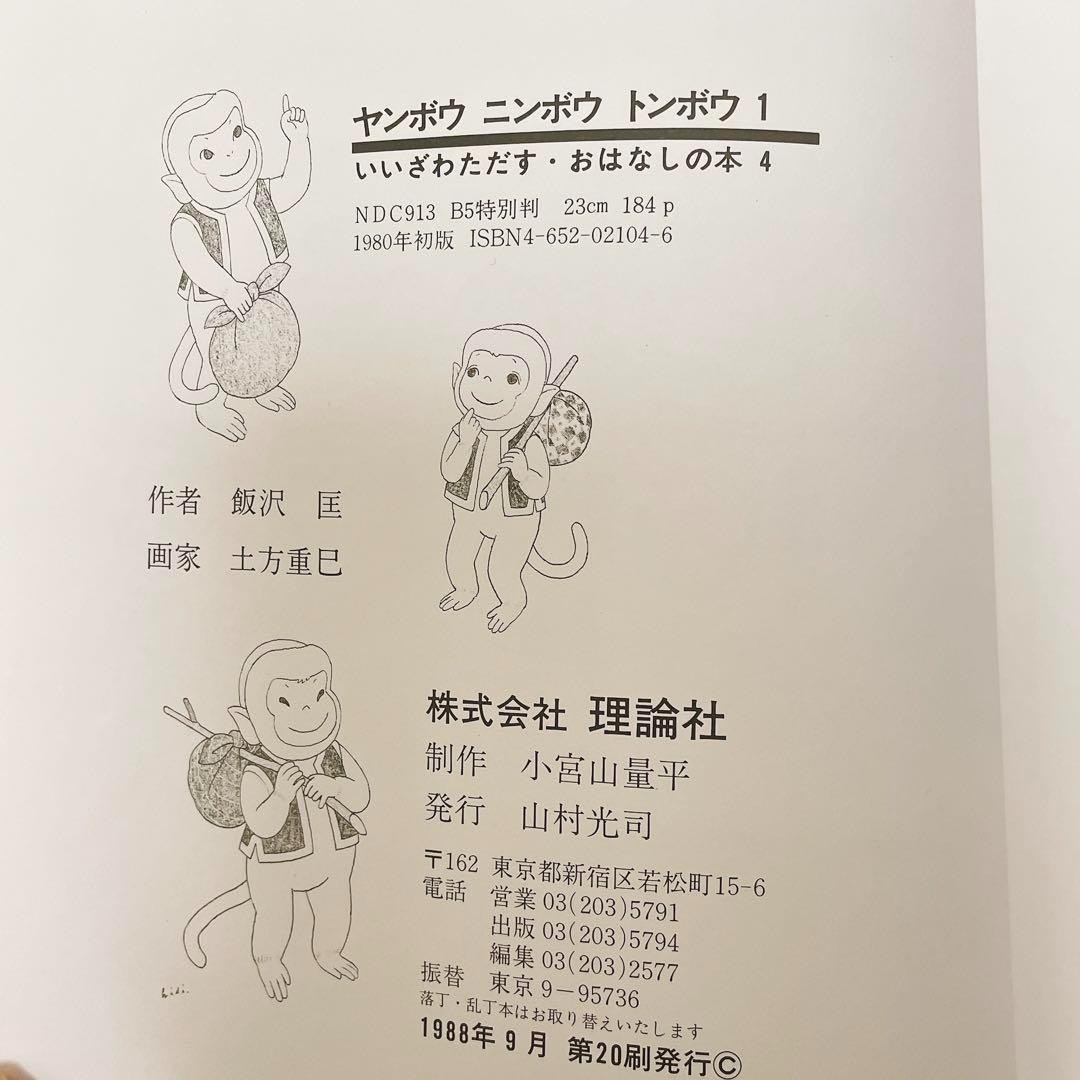 ヤンボウ ニンボウ トンボウ 1
いいざわただす・おはなしの本 4
NDC913 B5特別判 23cm 184p
1980年初版 ISBN4-652-02104-6
作者 飯沢 匡
画家 土方重巳
株式会社 理論社
制作 小宮山量平
発行 山村光司
〒162 東京都新宿区若松町15-6
電話 営業 03(203)5791
出版 03(203)5794
編集 03(203)2577
振替 東京 9-95736
落丁・乱丁本はお取り替えいたします
1988年9月 第20刷発行©
hidi.